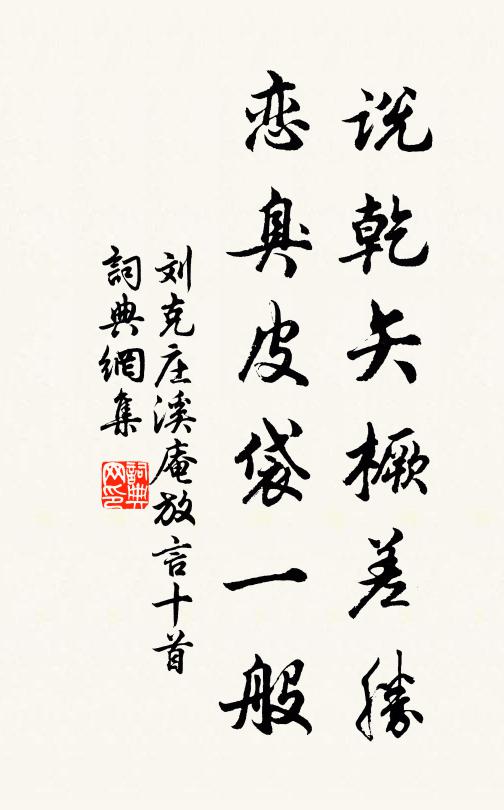 说乾矢橛差勝
恋臭皮袋一般
刘克庄溪庵放言十首
詞典網集
詞典网印